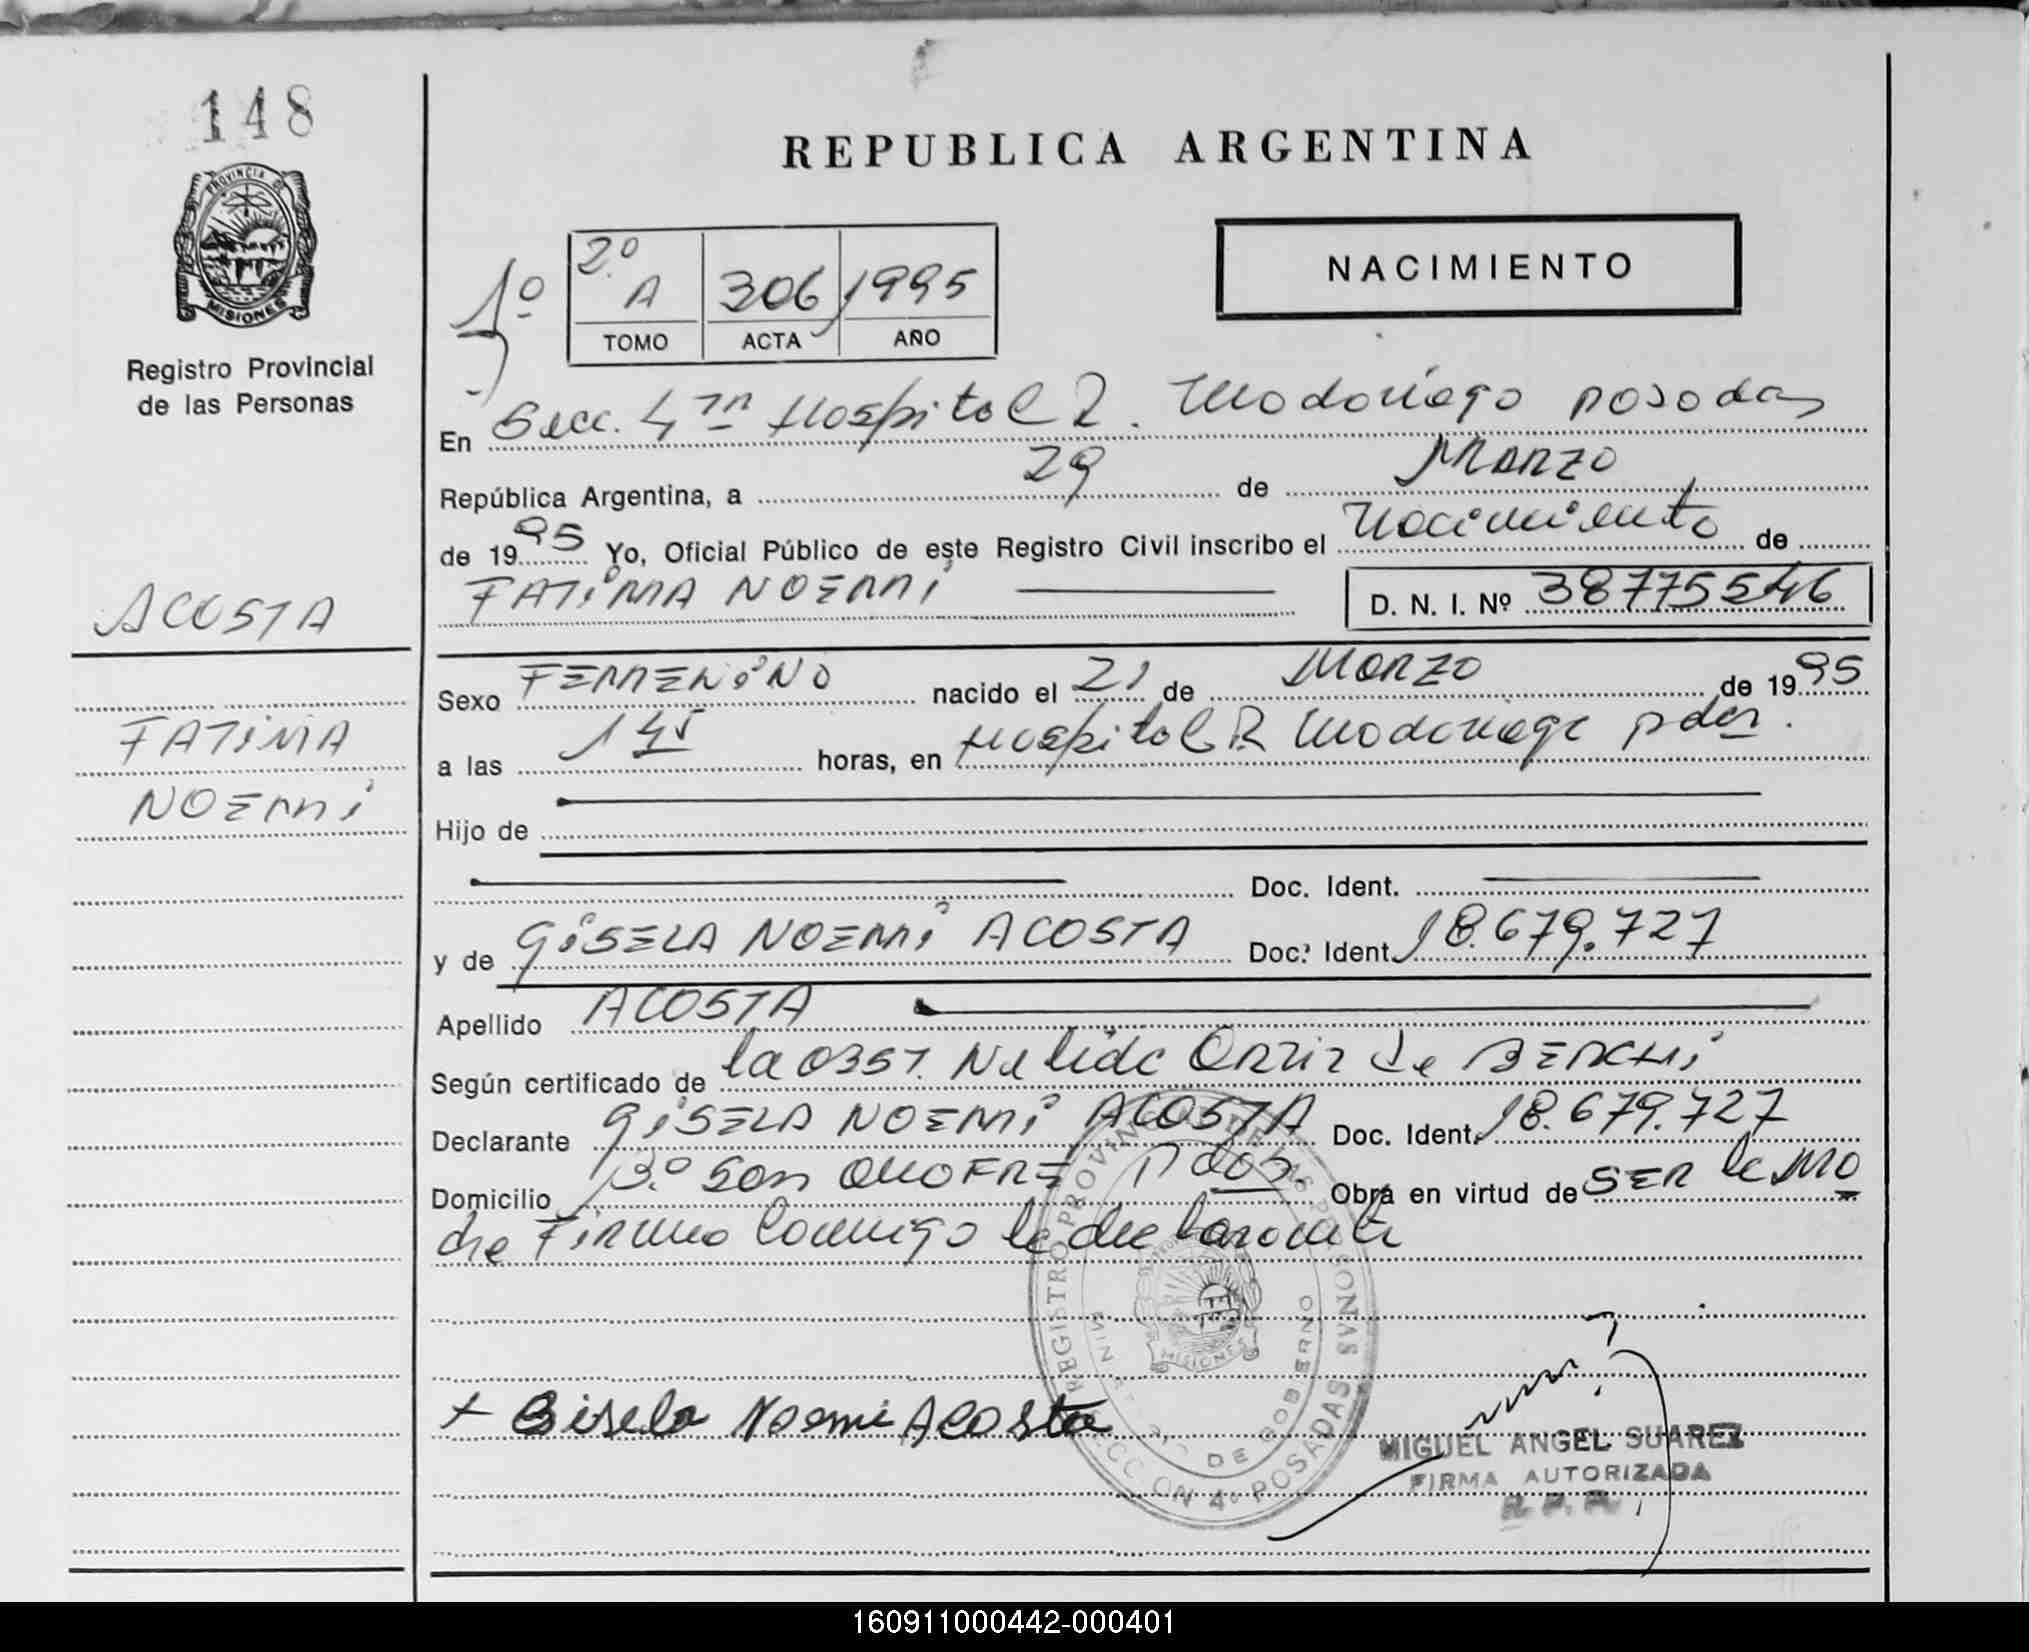 148
REPUBLICA ARGENTINA
PROVINCIA DE
MISIONES
Registro Provincial
de las Personas
1º
2º A 306 1995
TOMO ACTA AÑO
NACIMIENTO
En Secc. 4ta Hospital R. Madariaga posadas
República Argentina, a 29 de Marzo
de 1995 Yo, Oficial Público de este Registro Civil inscribo el Nacimiento de
FATiMA NOEMi D. N. I. Nº 38775546
ACOSTA
FATiMA
NOEMi
Sexo FEMENiNO nacido el 21 de Marzo de 1995
a las 145 horas, en Hospital R Madariaga pdas.
Hijo de
Doc. Ident.
y de GiSELA NOEMi ACOSTA Doc. Ident. 18.679.727
Apellido ACOSTA
Según certificado de la OBST. Nelida Ortiz de
Declarante GiSELA NOEMi ACOSTA Doc. Ident. 18.679.727
Domicilio San ONOFRE Pdos. Obra en virtud de SER la MA
dre Firma Conmigo la declarante
REGISTRO PROVINCIAL DE LAS PERSONAS
DE GOBIERNO
MISIONES
SECCION 4º POSADAS
+ Gisela Noemi Acosta
MIGUEL ANGEL SUAREZ
FIRMA AUTORIZADA
R. P. P.
160911000442-000401